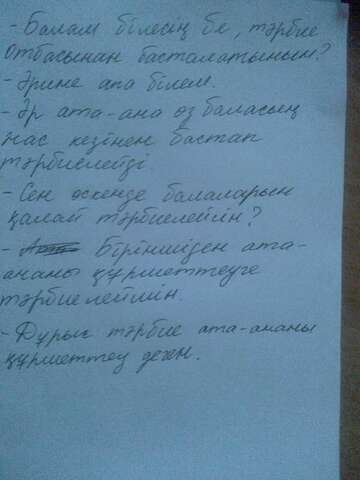 - Балам білесің бе, тәрбие
отбасынан басталатынын?
- Әрине апа білем.
- Әр ата-ана өз баласын
жас кезінен бастап
тәрбиелейді.
- Сен өскенде балаларын
қалай тәрбиелейлін?
- Біріншіден ата-
ананы құрметтеуге
тәрбиелеймін.
- Дұрыс тәрбие ата-ананы
құрметтеу деген.